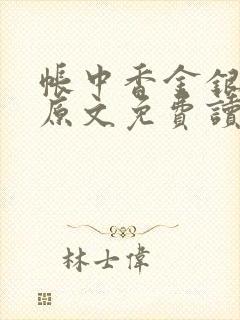 帳中香金銀
原文免費讀
林士偉